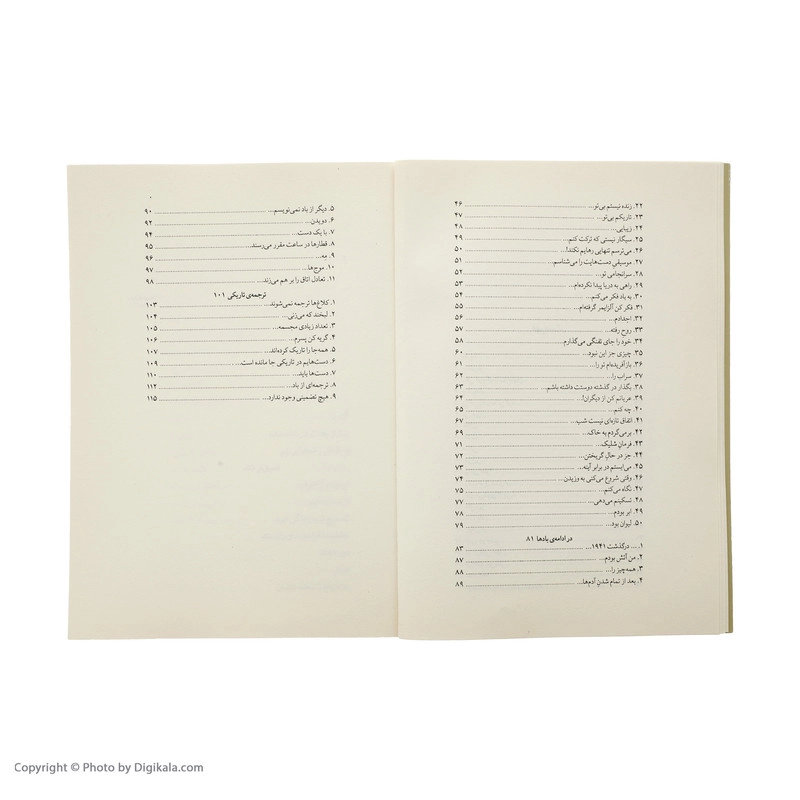 ۲۲. زنده نیستم بی‌تو... ۴۶
۲۳. تاریکم بی‌تو... ۴۷
۲۴. زیبایی... ۴۸
۲۵. سیگار نیستی که ترکت کنم... ۴۹
۲۶. می‌ترسم تنهایی رهایم نکند!... ۵۰
۲۷. موسیقیِ دست‌هایت را می‌شناسم... ۵۱
۲۸. سرانجامی تو... ۵۲
۲۹. راهی به دریا پیدا نکرده‌ام... ۵۳
۳۰. به باد فکر می‌کنم... ۵۴
۳۱. فکر کن آلزایمر گرفته‌ام... ۵۵
۳۲. اجدادم... ۵۶
۳۳. روح رفته... ۵۷
۳۴. خود را جای تفنگی می‌گذارم... ۵۸
۳۵. چیزی جز این نبود... ۶۰
۳۶. بازآفریده‌ام تو را... ۶۱
۳۷. سراب را... ۶۲
۳۸. بگذار در گذشته دوستت داشته باشم... ۶۳
۳۹. عریانم کن از دیگران!... ۶۴
۴۰. چه کنم... ۶۵
۴۱. اتفاق تازه‌ای نیست شب... ۶۷
۴۲. برمی‌گردم به خاک... ۶۹
۴۳. فرمانِ شلیک... ۷۱
۴۴. جز در حالِ گریختن... ۷۲
۴۵. می‌ایستم در برابر آینه... ۷۳
۴۶. وقتی شروع می‌کنی به وزیدن... ۷۴
۴۷. نگاه می‌کنم... ۷۵
۴۸. تسکینم می‌دهی... ۷۷
۴۹. ابر بودم... ۷۸
۵۰. لیوان بود... ۷۹
در ادامه‌ی بادها ۸۱
۱. ... درگذشت ۱۹۴۱... ۸۳
۲. من آتش بودم... ۸۷
۳. همه‌چیز را... ۸۸
۴. بعد از تمام شدنِ آدم‌ها... ۸۹
۵. دیگر از باد نمی‌نویسم... ۹۰
۶. دویدن... ۹۲
۷. با یک دست... ۹۴
۸. قطارها در ساعت مقرر می‌رسند... ۹۵
۹. مِه... ۹۶
۱۰. موج‌ها... ۹۷
۱۱. تعادل اتاق را بر هم می‌زند... ۹۸
ترجمه‌ی تاریکی ۱۰۱
۱. کلاغ‌ها ترجمه نمی‌شوند... ۱۰۳
۲. لبخند که می‌زنی... ۱۰۴
۳. تعداد زیادی مجسمه... ۱۰۵
۴. گریه کن پسرم... ۱۰۶
۵. همه‌جا را تاریک کرده‌اند... ۱۰۷
۶. دست‌هایم در تاریکی جا مانده است... ۱۰۹
۷. دست‌ها باید... ۱۱۰
۸. ترجمه‌ای از باد... ۱۱۲
۹. هیچ تضمینی وجود ندارد... ۱۱۵
Copyright © Photo by Digikala.com